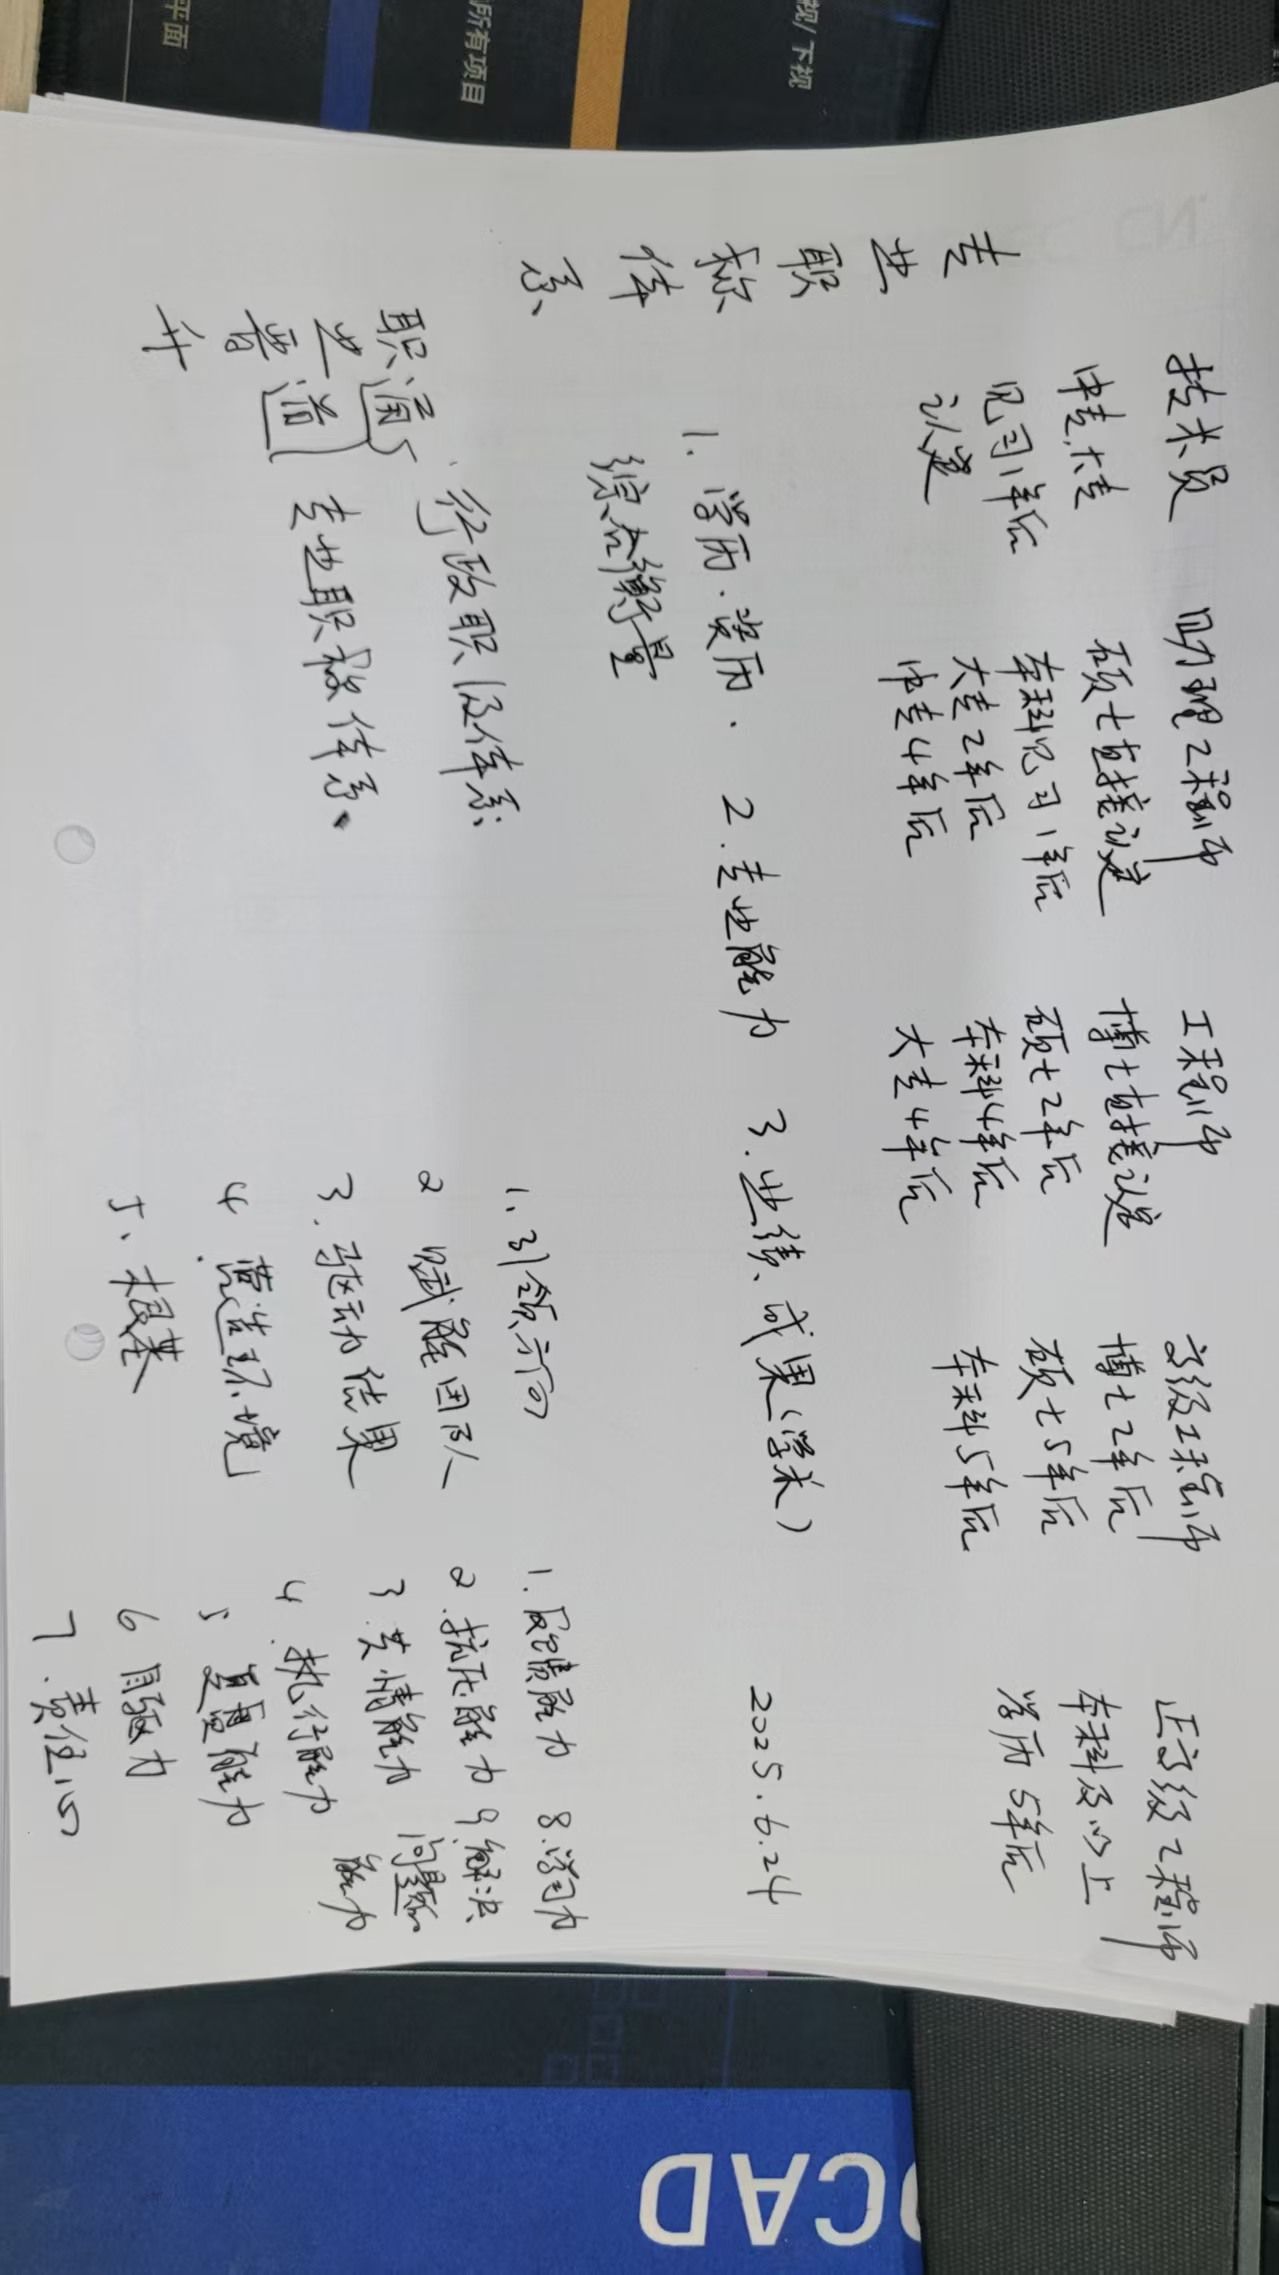 专业职称体系
技术员
中专、大专
见习1年后
认定
助理工程师
硕士直接认定
本科见习1年后
大专2年后
中专4年后
工程师
博士直接认定
硕士2年后
本科4年后
大专4年后
高级工程师
博士2年后
硕士5年后
本科5年后
正高级工程师
本科及以上
学历5年后
1. 学历.资历. 2.专业能力 3.业绩、成果(学术)
综合衡量
2025.6.24
职业晋升
通道
行政职级体系
专业职称体系.
1、引领方向
2 赋能团队
3.驱动结果
4.营造环境
5、根基
1.反馈能力
2.抗压能力
3.共情能力
4.执行能力
5 复盘能力
6 自驱力
7.责任心
8.学习力
9.解决
问题的
能力
平面
所有项目
视/下视
OCAD